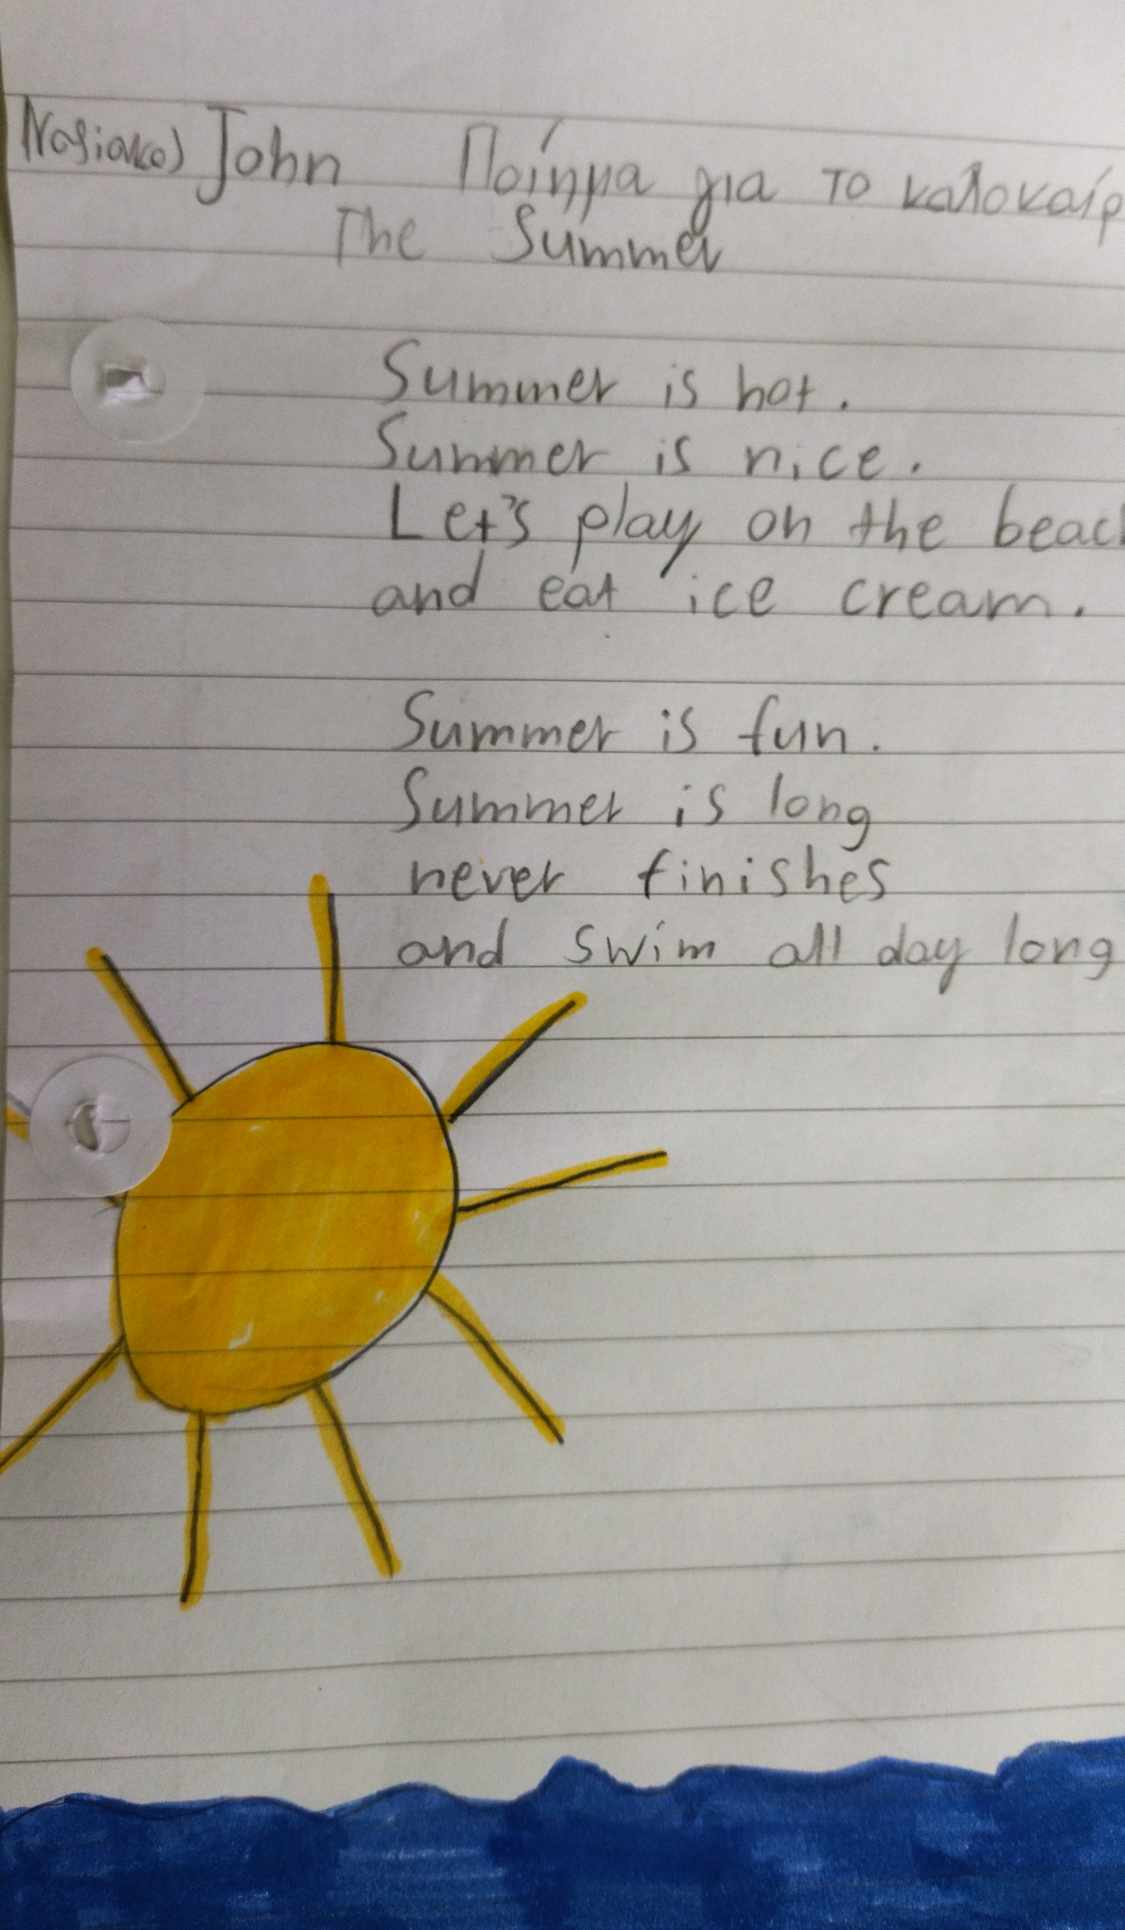 John Ποίημα για το καλοκαίρ
The Summer
Summer is hot.
Summer is nice.
Let's play on the beac
and eat ice cream.
Summer is fun.
Summer is long
never finishes
and swim all day long